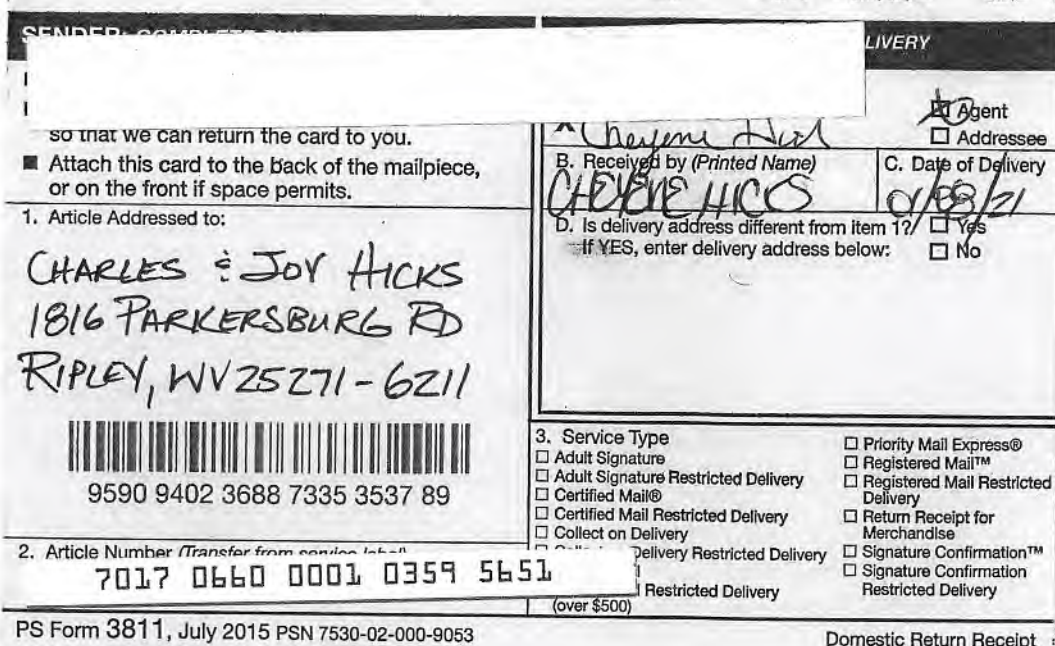 SENDER: COMPLETE
LIVERY
so that we can return the card to you.
■ Attach this card to the back of the mailpiece,
or on the front if space permits.
1. Article Addressed to:
CHARLES & JOY HICKS
1816 PARKERSBURG RD
RIPLEY, WV 25271-6211
9590 9402 3688 7335 3537 89
2. Article Number (Transfer from service label)
7017 0660 0001 0359 5651
PS Form 3811, July 2015 PSN 7530-02-000-9053
X Cheyene
☒ Agent
☐ Addressee
B. Received by (Printed Name)
CHEYENE HICKS
C. Date of Delivery
D. Is delivery address different from item 1? ☐ Yes
If YES, enter delivery address below: ☐ No
3. Service Type
☐ Adult Signature
☐ Adult Signature Restricted Delivery
☐ Certified Mail®
☐ Certified Mail Restricted Delivery
☐ Collect on Delivery
Delivery Restricted Delivery
Restricted Delivery
(over $500)
☐ Priority Mail Express®
☐ Registered Mail™
☐ Registered Mail Restricted
Delivery
☐ Return Receipt for
Merchandise
☐ Signature Confirmation™
☐ Signature Confirmation
Restricted Delivery
Domestic Return Receipt